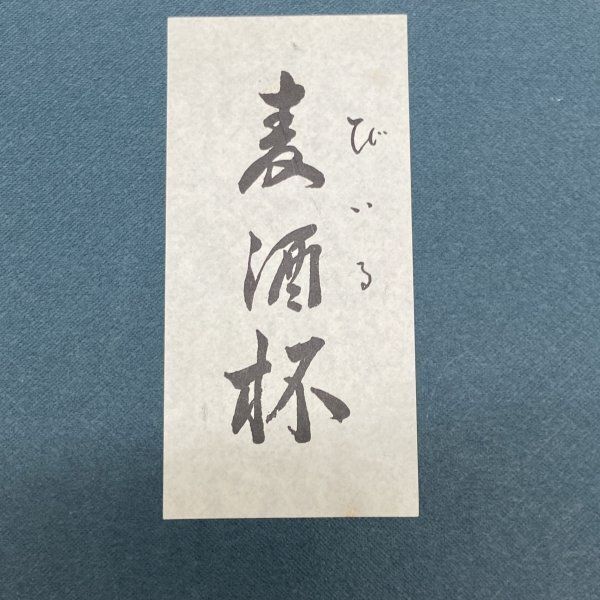 麦酒杯
びいる